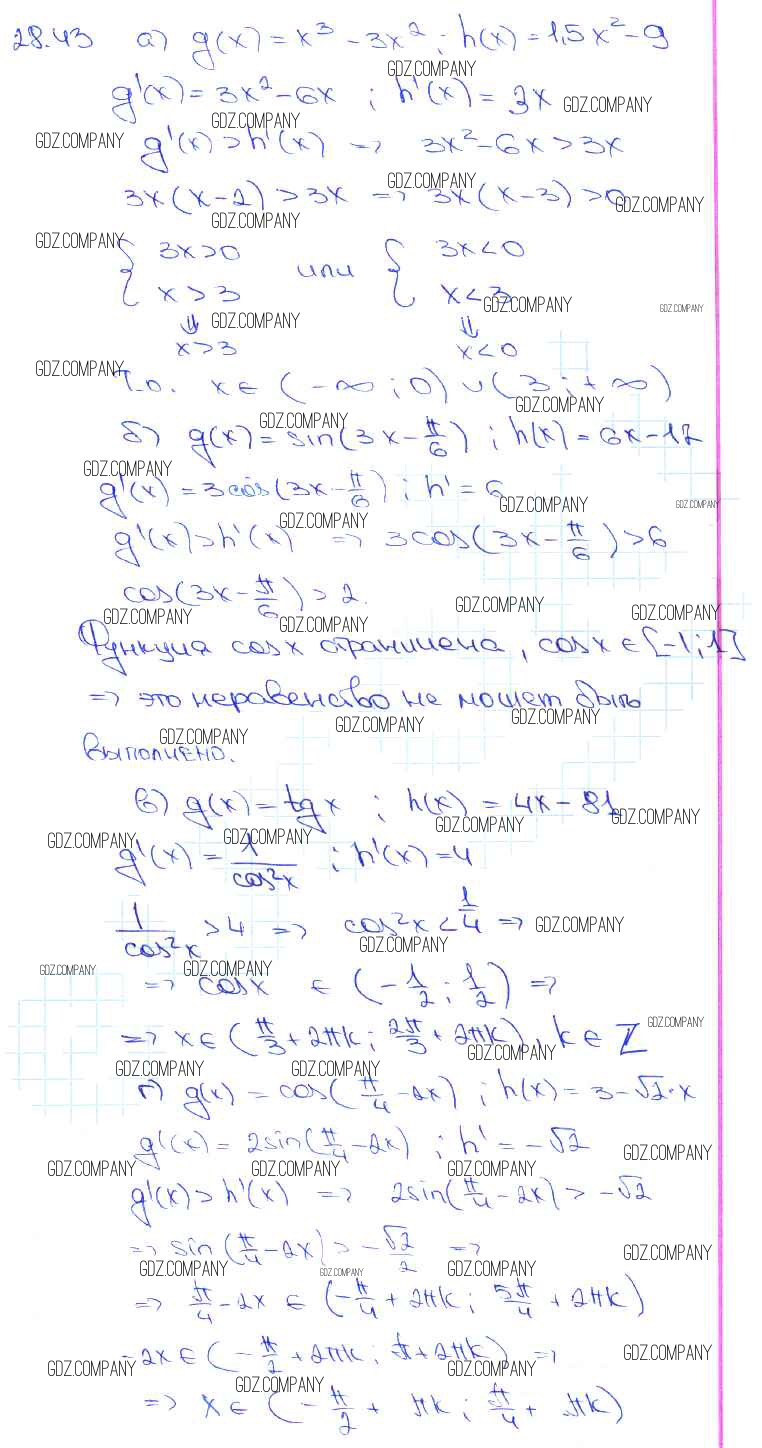 28.43 а) g(x) = x³ - 3x² ; h(x) = 1,5x² - 9
GDZ.COMPANY
g'(x) = 3x² - 6x ; h'(x) = 3x GDZ.COMPANY
GDZ.COMPANY
GDZ.COMPANY g'(x) > h'(x) => 3x² - 6x > 3x
GDZ.COMPANY
3x(x-2) > 3x => 3x(x-3) > 0 GDZ.COMPANY
GDZ.COMPANY
GDZ.COMPANY { 3x > 0 или { 3x < 0
x > 3 x < 3 GDZ.COMPANY GDZ.COMPANY
⇓ GDZ.COMPANY ⇓
x > 3 x < 0
GDZ.COMPANY
Т.о. x ∈ (-∞ ; 0) ∪ (3 ; +∞)
GDZ.COMPANY
GDZ.COMPANY
б) g(x) = sin(3x - π/6) ; h(x) = 6x - 12
GDZ.COMPANY
g'(x) = 3cos(3x - π/6) ; h' = 6
GDZ.COMPANY GDZ.COMPANY
GDZ.COMPANY
g'(x) > h'(x) => 3cos(3x - π/6) > 6
cos(3x - π/6) > 2.
GDZ.COMPANY GDZ.COMPANY GDZ.COMPANY GDZ.COMPANY
Функция cos x ограничена, cos x ∈ [-1;1]
=> это неравенство не может быть
GDZ.COMPANY GDZ.COMPANY GDZ.COMPANY
выполнено.
в) g(x) = tg x ; h(x) = 4x - 81
GDZ.COMPANY GDZ.COMPANY
GDZ.COMPANY GDZ.COMPANY
g'(x) = 1/cos²x ; h'(x) = 4
1/cos²x > 4 => cos²x < 1/4 => GDZ.COMPANY
GDZ.COMPANY
GDZ.COMPANY GDZ.COMPANY
=> cos x ∈ (-1/2 ; 1/2) =>
=> x ∈ (π/3 + 2πk ; 2π/3 + 2πk), k ∈ Z GDZ.COMPANY
GDZ.COMPANY
GDZ.COMPANY GDZ.COMPANY
г) g(x) = cos(π/4 - 2x) ; h(x) = 3 - √2·x
g'(x) = 2sin(π/4 - 2x) ; h' = -√2 GDZ.COMPANY
GDZ.COMPANY GDZ.COMPANY GDZ.COMPANY
g'(x) > h'(x) => 2sin(π/4 - 2x) > -√2
=> sin(π/4 - 2x) > -√2/2 => GDZ.COMPANY
GDZ.COMPANY GDZ.COMPANY GDZ.COMPANY
=> π/4 - 2x ∈ (-π/4 + 2πk ; 5π/4 + 2πk)
-2x ∈ (-π/2 + 2πk ; π + 2πk) => GDZ.COMPANY
GDZ.COMPANY GDZ.COMPANY
GDZ.COMPANY
=> x ∈ (-π/2 + πk ; π/4 + πk)